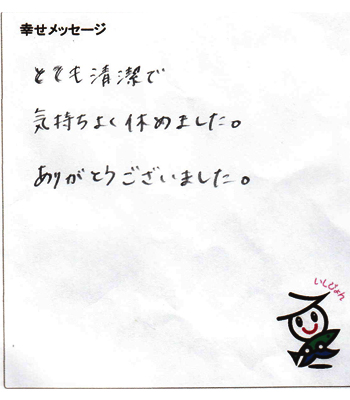 幸せメッセージ
とても清潔で
気持ちよく休めました。
ありがとうございました。
いしぴょん